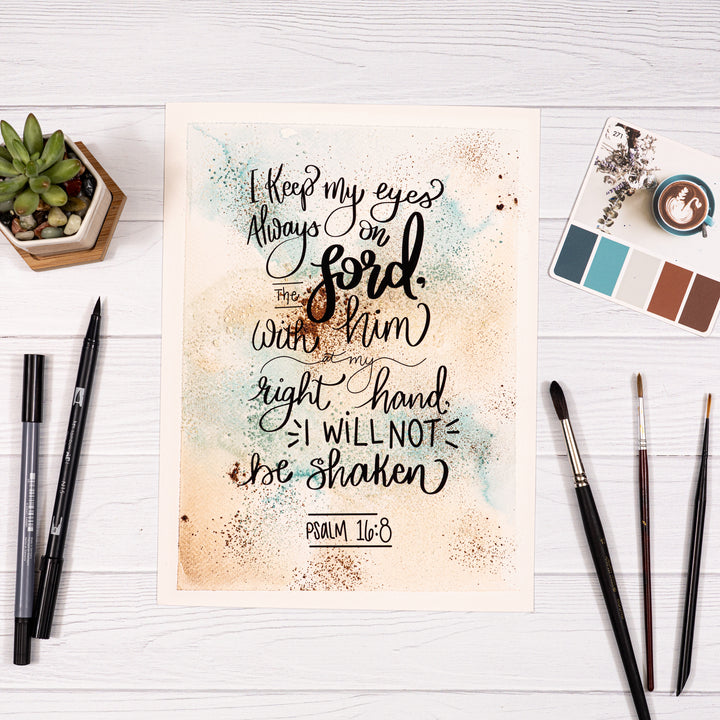 I Keep my eyes
Always on
The Lord,
with him
at my
right hand,
I WILL NOT
be shaken
PSALM 16:8
271